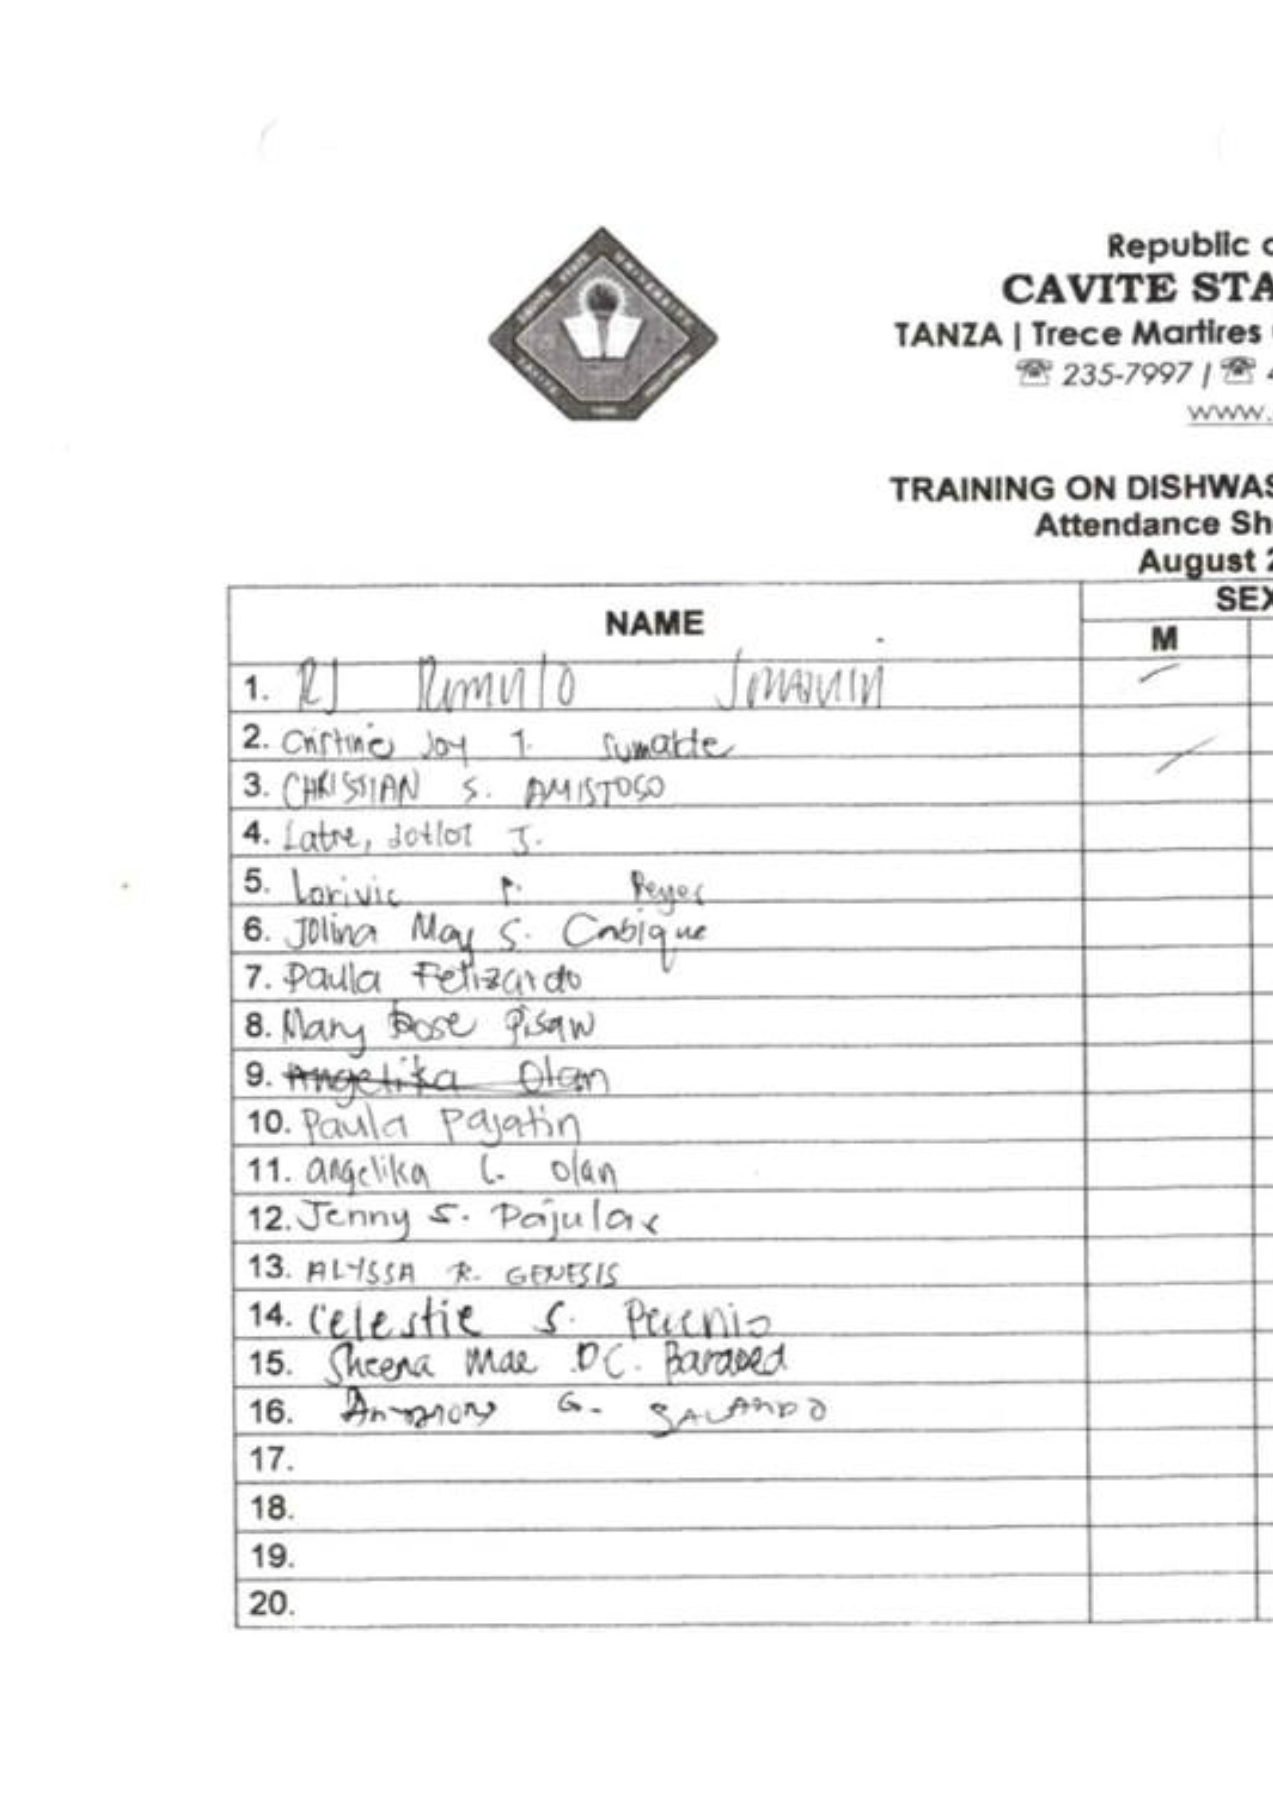 Republic
CAVITE STA
TANZA | Trece Martires
☏ 235-7997 / ☏ 4
www.
TRAINING ON DISHWAS
Attendance Sh
August 2
NAME
SEX
M
1. RJ Romulo
2. Cristine Joy T. Sumalde
3. CHRISTIAN S. AMISTOSO
4. Latre, J.
5. Lorivic P. Reyes
6. Jolina May S. Cabique
7. Paula Felizardo
8. Mary Rose Pisaw
9. Angelika Olan
10. Paula Pajatin
11. angelika L. olan
12. Jenny S. Pajular
13. ALYSSA R. GENESIS
14. Celestie S. Perenio
15. Sheena Mae DC.
16. G. SALANDO
17.
18.
19.
20.